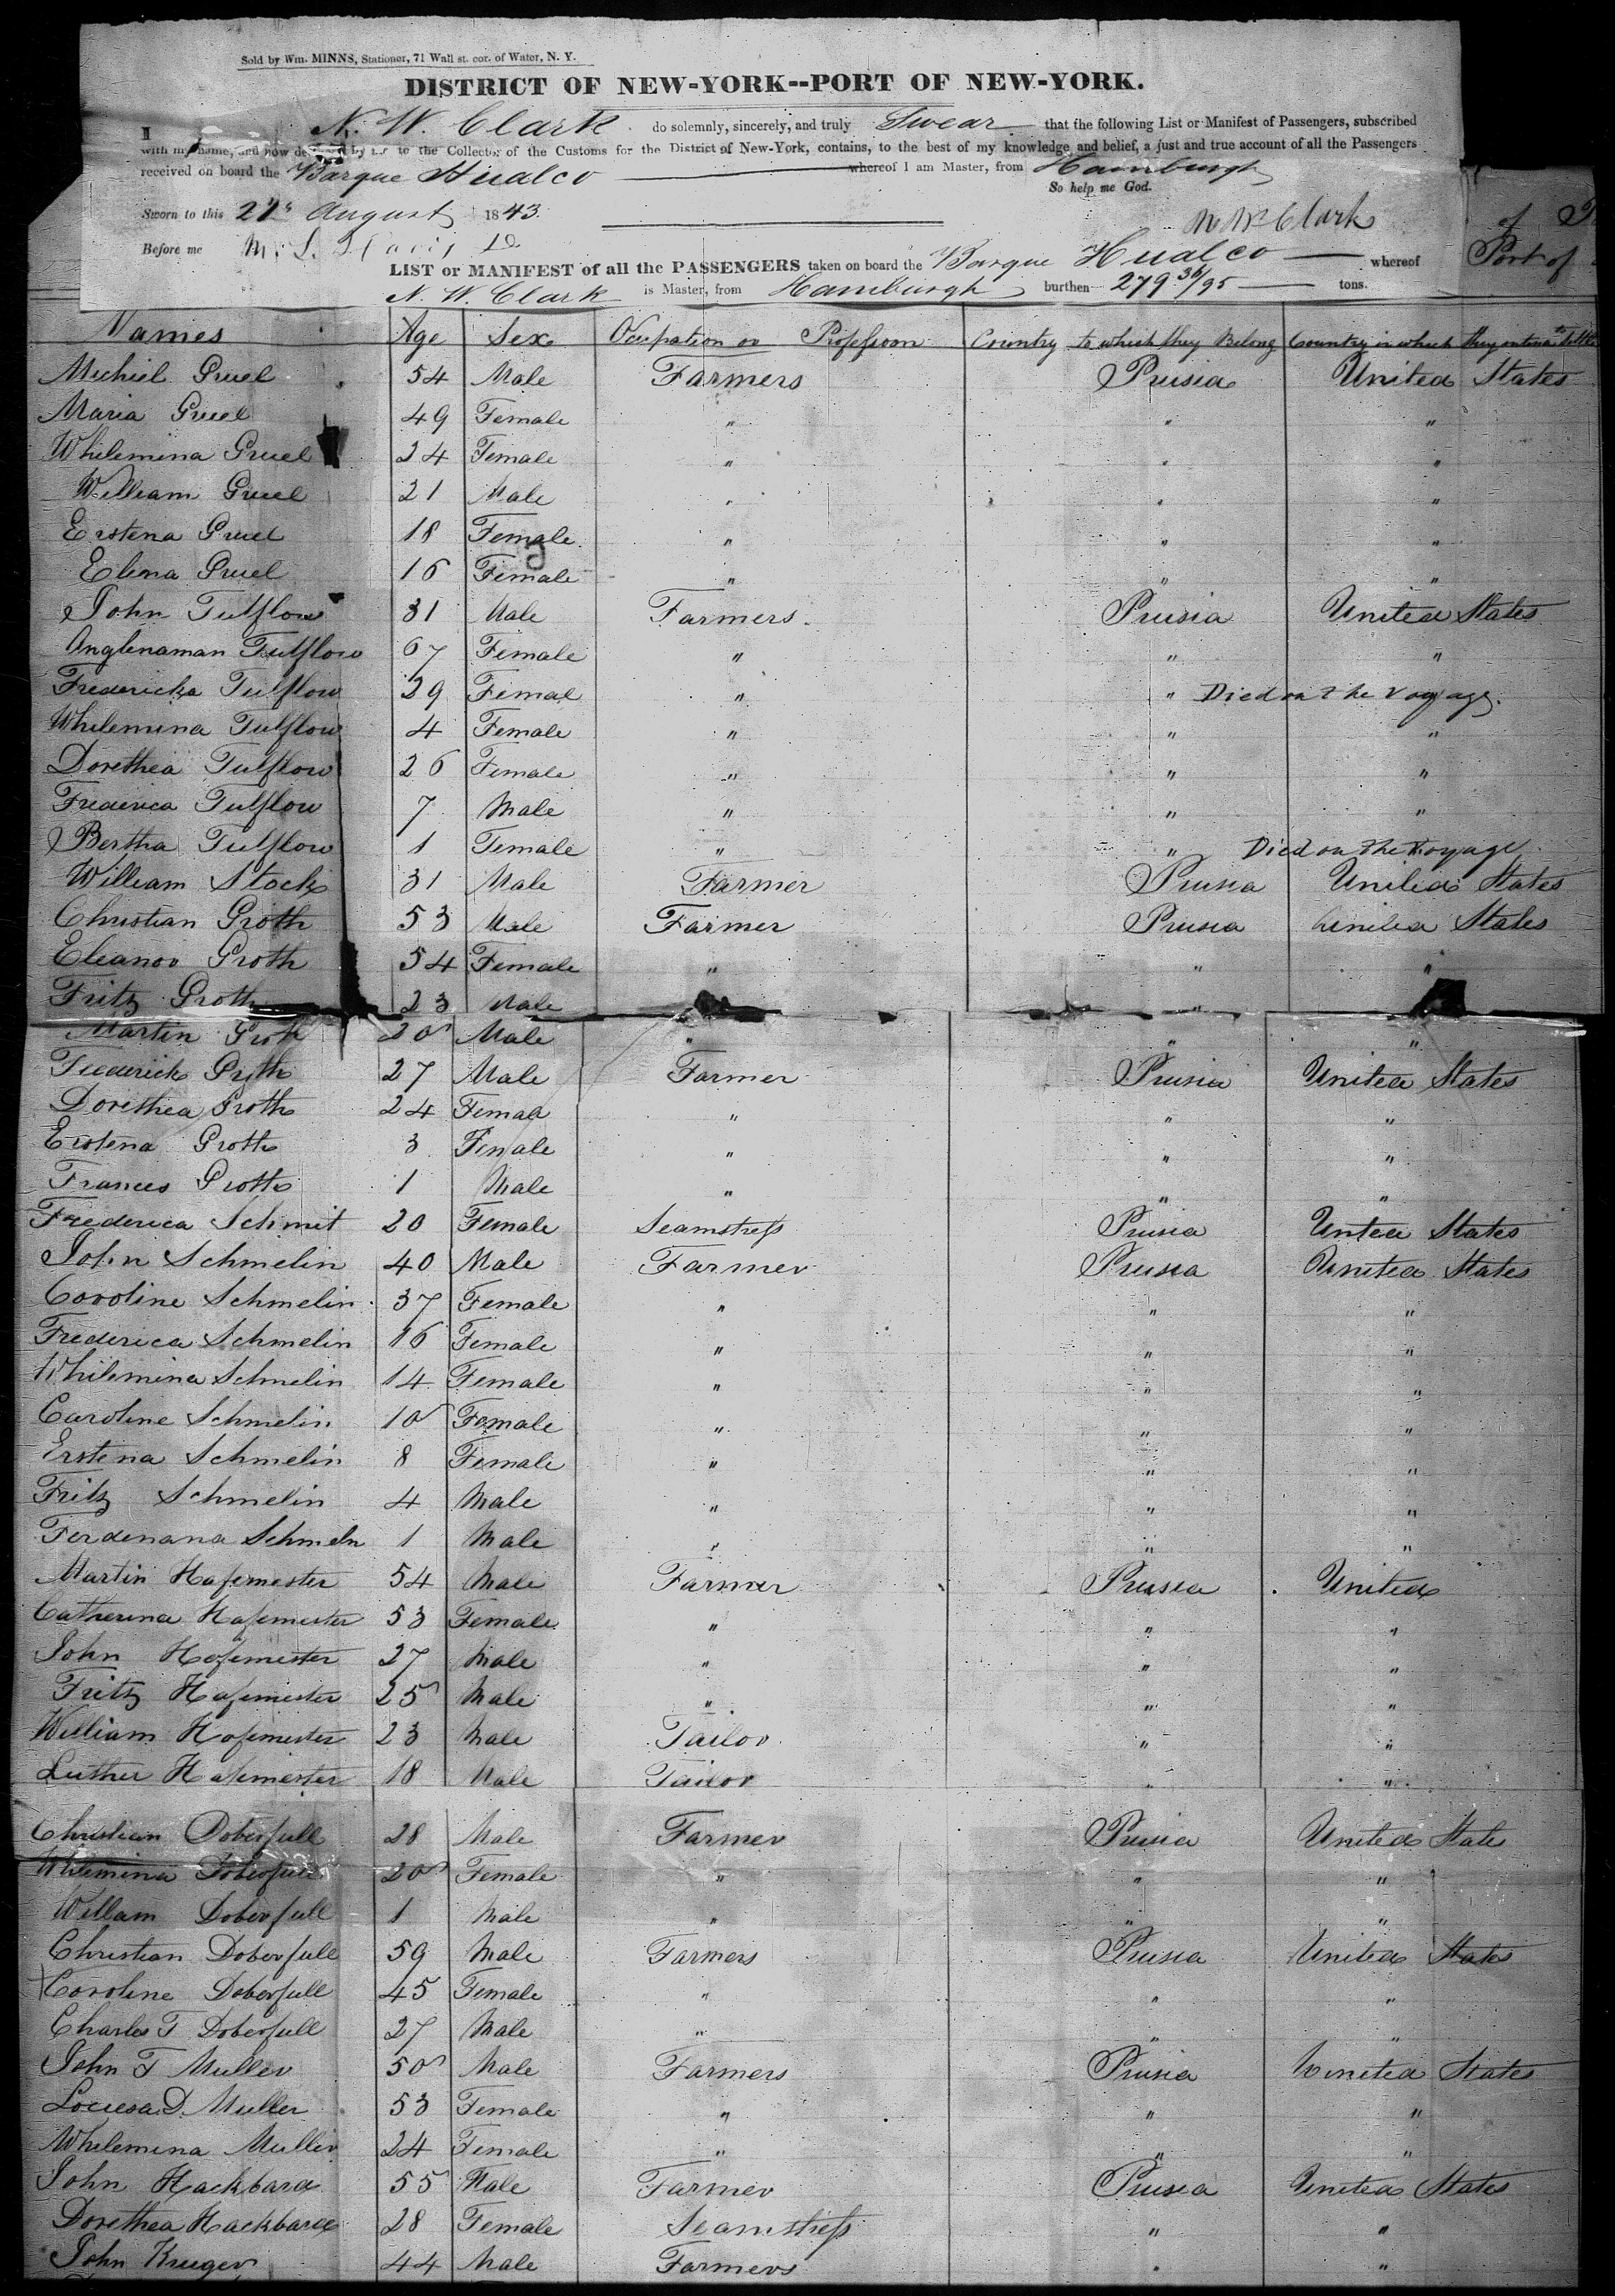 Sold by Wm. MINNS, Stationer, 71 Wall st. cor. of Water, N. Y.
DISTRICT OF NEW-YORK--PORT OF NEW-YORK.
I N. W. Clark do solemnly, sincerely, and truly Swear that the following List or Manifest of Passengers, subscribed
with my name, and now delivered by me to the Collector of the Customs for the District of New-York, contains, to the best of my knowledge and belief, a just and true account of all the Passengers
received on board the Barque Hualco whereof I am Master, from Hamburgh
So help me God.
Sworn to this August 1843.
N W Clark
Before me
LIST or MANIFEST of all the PASSENGERS taken on board the Barque Hualco whereof
N. W. Clark is Master, from Hamburgh burthen 279 36/95 tons.
of
Port of
Names Age Sex Ocupation or Profession Country to which they Belong Country in which they intend to settle
Michiel Gruel 54 Male Farmers Prusia United States
Maria Gruel 49 Female " " "
Whilemina Gruel 24 Female " " "
William Gruel 21 Male " " "
Erstena Gruel 18 Female " " "
Elena Gruel 16 Female " " "
John Tulflow 31 Male Farmers Prusia United States
Anglenaman Tulflow 67 Female " " "
Fredericka Tulflow 29 Femal " " Died on the Voyage.
Whilemina Tulflow 4 Female " " "
Dorethea Tulflow 26 Female " " "
Frederica Tulflow 7 Male " " "
Bertha Tulflow 1 Female " " Died on the Voyage
William Stock 31 Male Farmer Prusia United States
Christian Groth 53 Male Farmer Prusia United States
Eleanor Groth 54 Female " " "
Fritz Groth 23 Male "
Martin Groth 20 Male " " "
Frederick Groth 27 Male Farmer Prusia United States
Dorethea Groth 24 Femal " " "
Erstena Groth 3 Female " " "
Frances Groth 1 Male " " "
Frederica Schmit 20 Female Seamstress Prusia United States
John Schmelin 40 Male Farmer Prusia United States
Coroline Schmelin 37 Female " " "
Frederica Schmelin 16 Female " " "
Whilemina Schmelin 14 Female " " "
Caroline Schmelin 10 Female " " "
Erstena Schmelin 8 Female " " "
Fritz Schmelin 4 Male " " "
Ferdenand Schmeln 1 Male " " "
Martin Hafemester 54 Male Farmer Prusia United
Catherina Hafemester 53 Female " " "
John Hafemester 27 Male " " "
Fritz Hafemester 25 Male " " "
William Hafemester 23 Male Tailor " "
Luther Hafemester 18 Male Tailor " "
Christian Doberfull 28 Male Farmer Prusia United State
Whilemina Doberfull 20 Female " " "
Willam Doberfull 1 Male " " "
Christian Doberfull 59 Male Farmers Prusia United States
Coroline Doberfull 45 Female " " "
Charles T Doberfull 27 Male " " "
John T Muller 50 Male Farmers Prusia United States
Louesa D. Muller 53 Female " " "
Whilemena Muller 24 Female " " "
John Hackbard 55 Male Farmer Prusia United States
Dorethea Hackbard 28 Female Seamstress " "
John Kruger 44 Male Farmers " "